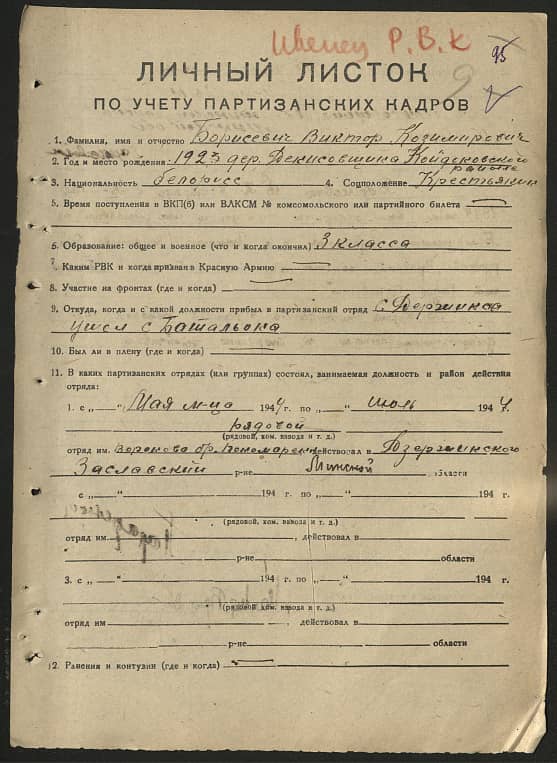 Ивенец Р.В.К
95
ЛИЧНЫЙ ЛИСТОК
9
ПО УЧЕТУ ПАРТИЗАНСКИХ КАДРОВ
1. Фамилия, имя и отчество Борисевич Виктор Козимирович
2. Год и место рождения: 1923 дер. Денисовщина Койдоновского
района
3. Национальность белорусс 4. Соцположение Крестьянин
5. Время поступления в ВКП(б) или ВЛКСМ № комсомольского или партийного билета —
6. Образование: общее и военное (что и когда окончил) 3 класса
7. Каким РВК и когда призван в Красную Армию —
8. Участие на фронтах (где и когда) —
9. Откуда, когда и с какой должности прибыл в партизанский отряд с Дзержинса
ушел с Батальона
10. Был ли в плену (где и когда) —
11. В каких партизанских отрядах (или группах) состоял, занимаемая должность и район действия
отряда:
1. с „ “ Мая м-ца 1944 г. по „ “ июль 1944 г.
рядовой
(рядовой, ком. взвода и т. д.)
отряд им. Воронова бр. Пономаренко действовал в Дзержинского
Заславский р-не Минской области
с „ “ 194 г. по „ “ 194 г.
(рядовой, ком. взвода и т. д.)
отряд им. , действовал в
р-не области
3. с „ “ 194 г. по „ “ 194 г.
(рядовой, ком. взвода и т. д.)
отряд им , действовал в
р-не области
12. Ранения и контузии (где и когда) —